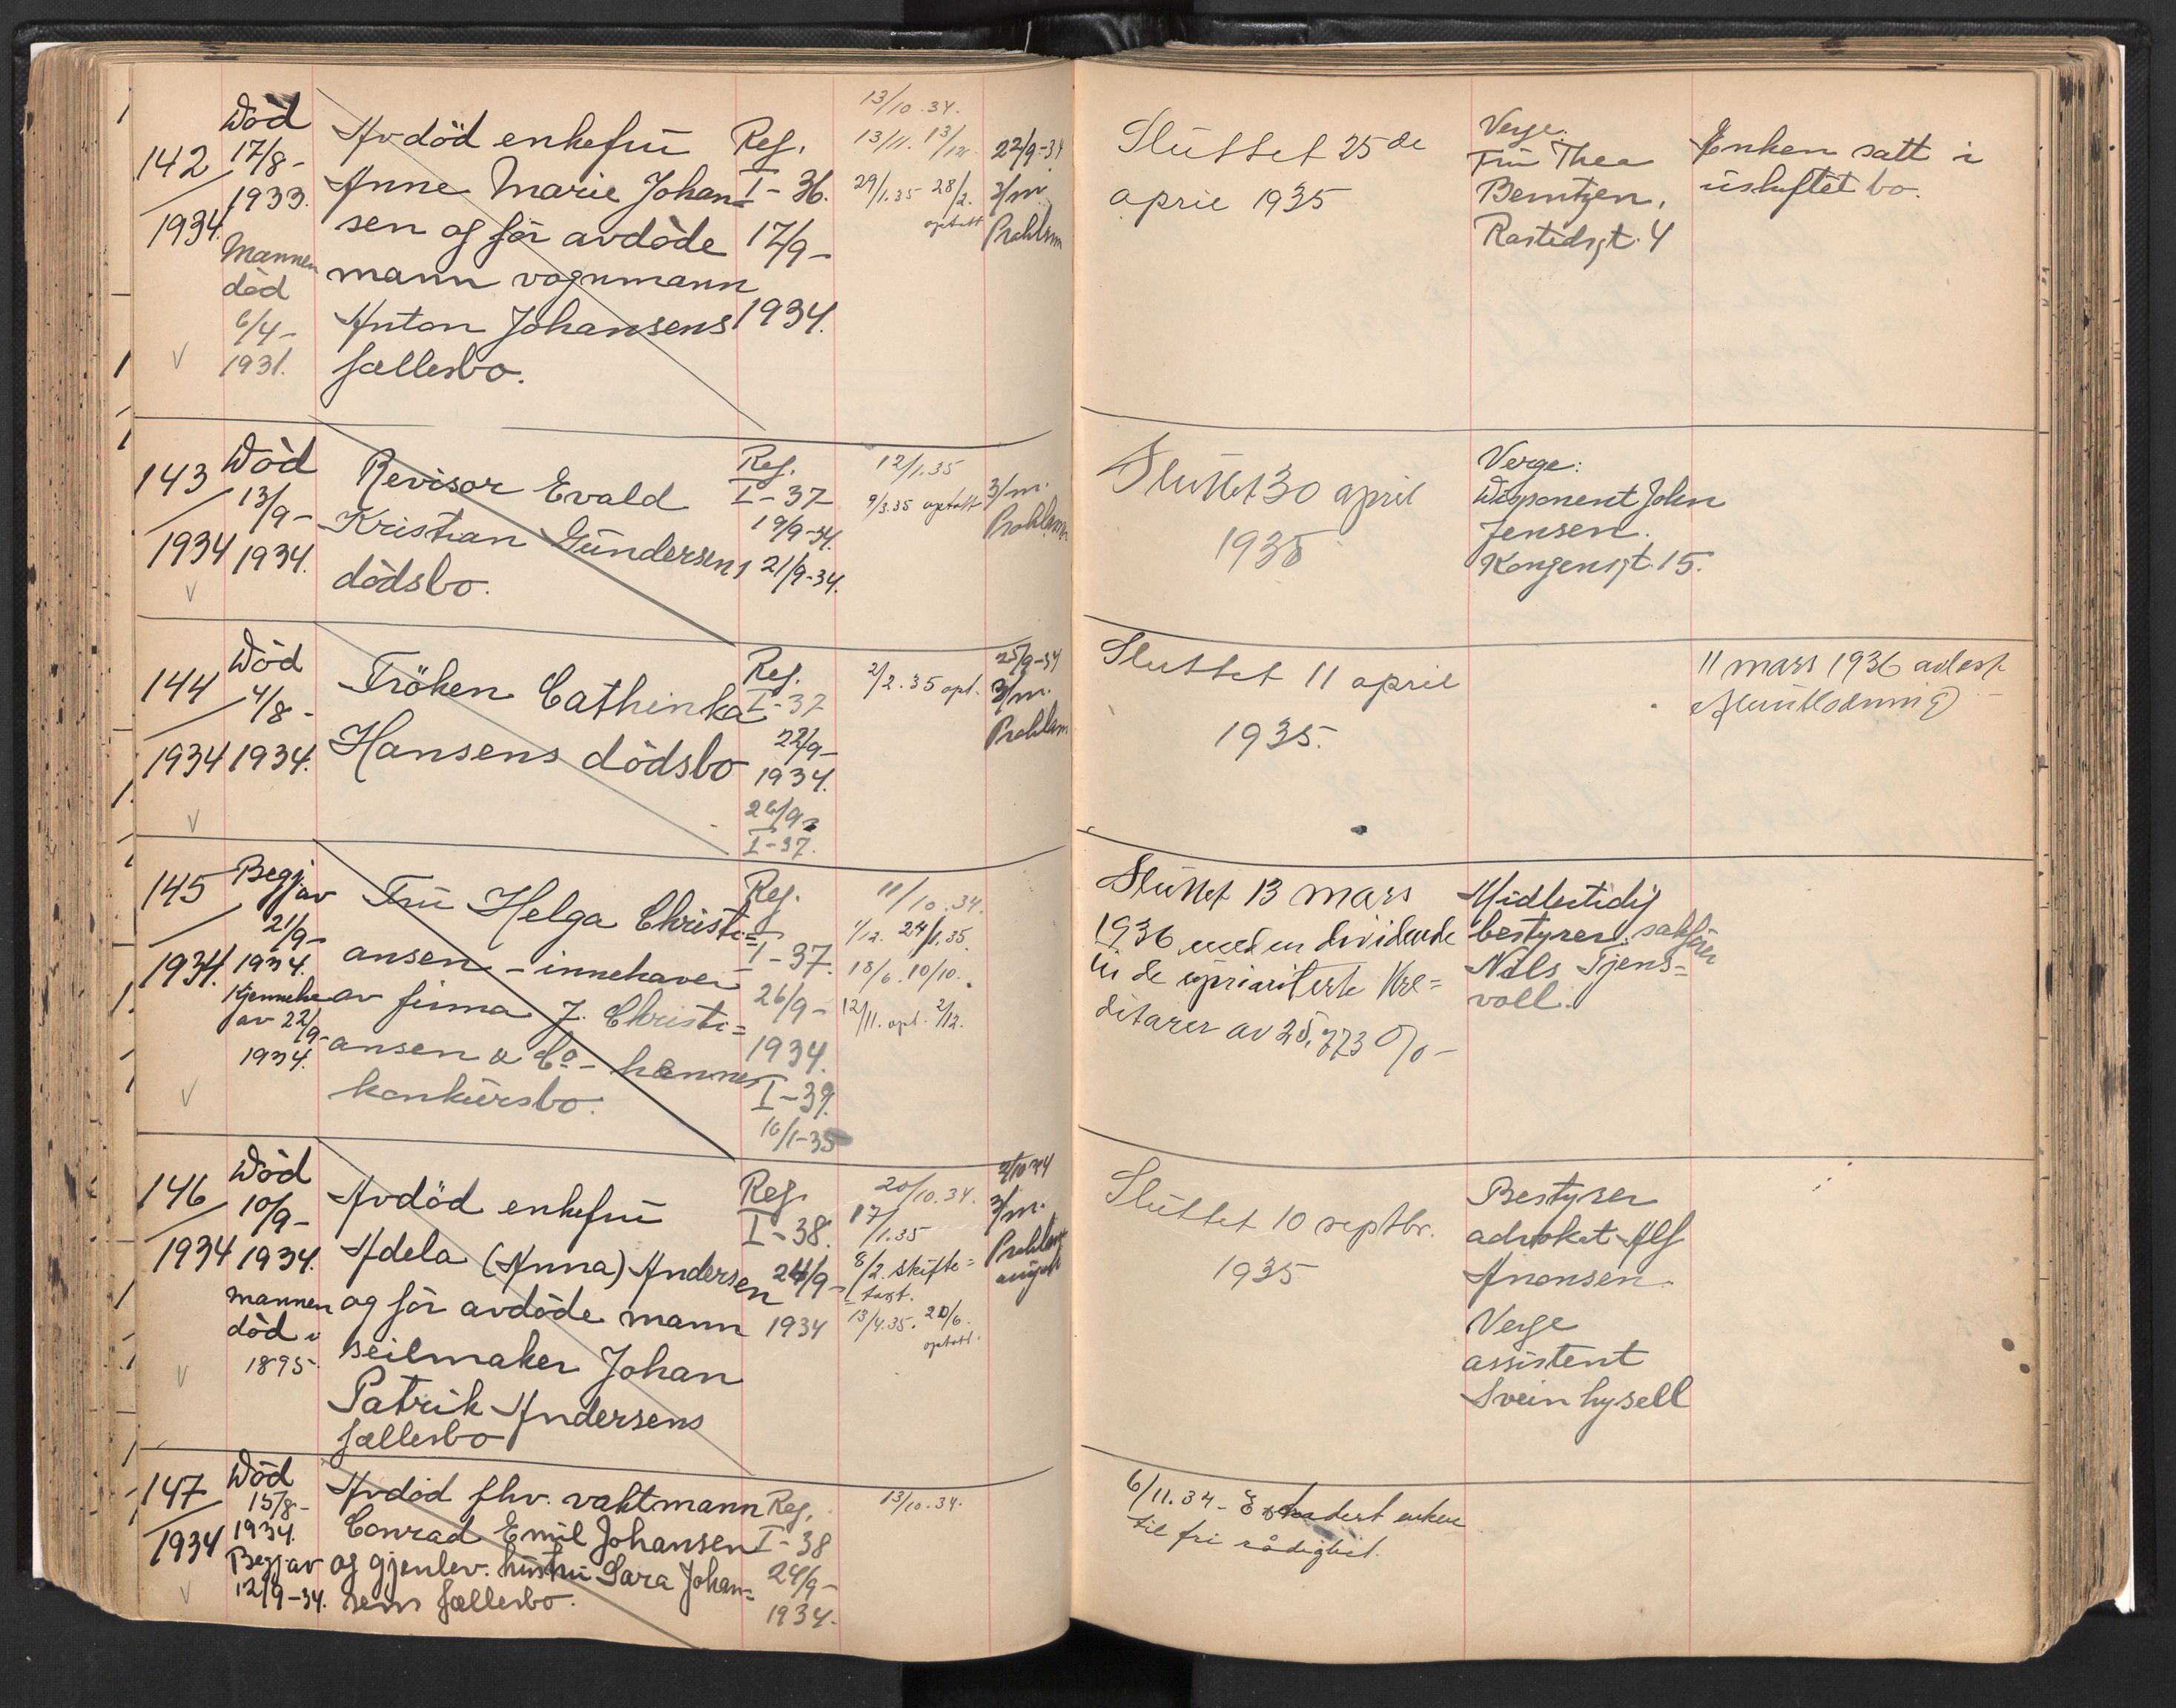 142
1934.
Död
17/8-
1933.
Mannen
död
6/4-
1931.
Avdöd enkefru
Anne Marie Johan=
sen og før avdøde
mann vognmann
Anton Johansens
fællesbo.
Reg.
I-36.
17/9-
1934.
13/10.34.
13/11. 13/12.
29/1.35 28/2.
optatt
22/9-34
3/m.
Proklam
Sluttet 25de
april 1935
Verge:
Fru Thea
Berntzen,
Rastedsgt. 4
Enken satt i
uskiftet bo.
143
1934
Död
13/9-
1934.
Revisor Evald
Kristian Gundersens
dödsbo.
Reg.
I-37
19/9-34.
21/9-34.
12/1.35
9/3.35 optatt
3/m.
Proklam
Sluttet 30 april
1935
Verge:
Disponent John
Jensen.
Kongensgt. 15.
144
1934
Död
4/8-
1934.
Fröken Cathinka
Hansens dödsbo
Reg.
I-37
22/9-
1934.
26/9-
I-37.
2/2.35 opt.
25/9-34
3/m.
Proklam
Sluttet 11 april
1935.
11 mars 1936
145
1934.
Begj av
21/9-
1934.
Kjennelse
av 22/9-
1934.
Fru Helga Christi=
ansen - innehaver
av firma J. Christi=
ansen & Co - hennes
konkursbo.
Reg.
I-37.
26/9-
1934.
I-39.
16/1-35
11/10.34.
1/12. 24/1.35.
18/6. 10/10.
12/11. opt. 2/12.
Sluttet 13 mars
1936 med en dividende
til de uprioriterte Kre=
ditorer av 25,773 %-
Midlertidig
bestyrer: sakfører
Nils Tjens=
voll.
146
1934
Död
10/9-
1934.
Mannen
död i
1895.
Avdöd enkefru
Adela (Anna) Andersen
og før avdøde mann
seilmaker Johan
Patrik Andersens
fællesbo
Reg.
I-38.
24/9-
1934
20/10.34.
17/1.35
8/2. Skifte=
taxt.
13/4.35. 20/6.
optatt.
2/10 34
3/m.
Proklam
Sluttet 10 septbr.
1935
Bestyrer
advokat Alf
Anonsen.
Verge
assistent
Svein hysell
147
1934
Död
15/8-
1934.
Begj av
12/9-34.
Avdöd fhv. vaktmann
Conrad Emil Johansen
og gjenlev. hustru Sara Johan=
sens fællesbo.
Reg.
I-38
24/9-
1934.
13/10.34.
6/11.34- Extradert enken
til fri rådighet.